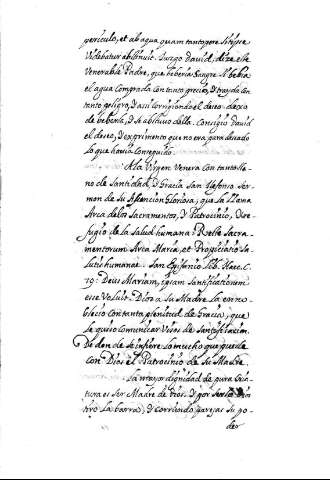 periculo, et ab aqua quam tantopere sitijsse
Videbatur abstinuio. Juzgo david, dize este
Venerable Padre, que bebería Sangre si bebia
el agua Comprada con tanto precio, y trayda con
tanto peligro, y assi Corrigiendo el deseo dexo
de beberla, y se abstuvo della. Consiguio David
el deseo, y experimento que no era para deseado
lo que havia Conseguido.
A la Virgen Venera con tanto lle-
no de Santidad, y Gracia San Ildefonso Ser-
mon de su Asuncion Gloriosa, que la llama
Arca de los Sacramentos, y Patrocinio, y Re-
fugio de la salud humana: Sacra-
mentorum Arca Maria, et Propiciatio Sa-
lutis humanae. San Epifanio lib. Haec. C.
79: Deus Mariam, quam Santificatiorum
esse Voluit. Dios a su Madre la enno-
blecio con tanta plenitud de Gracia, que
le quiso Comunicar Visos de Santificacion.
De don de se infiere lo mucho que puede
con Dios el Patrocinio de su Madre.
La mayor dignidad de pura Cria-
tura es ser Madre de Dios. y por serlo Dios
tiro la barra, y corriendo parejas su po-
der